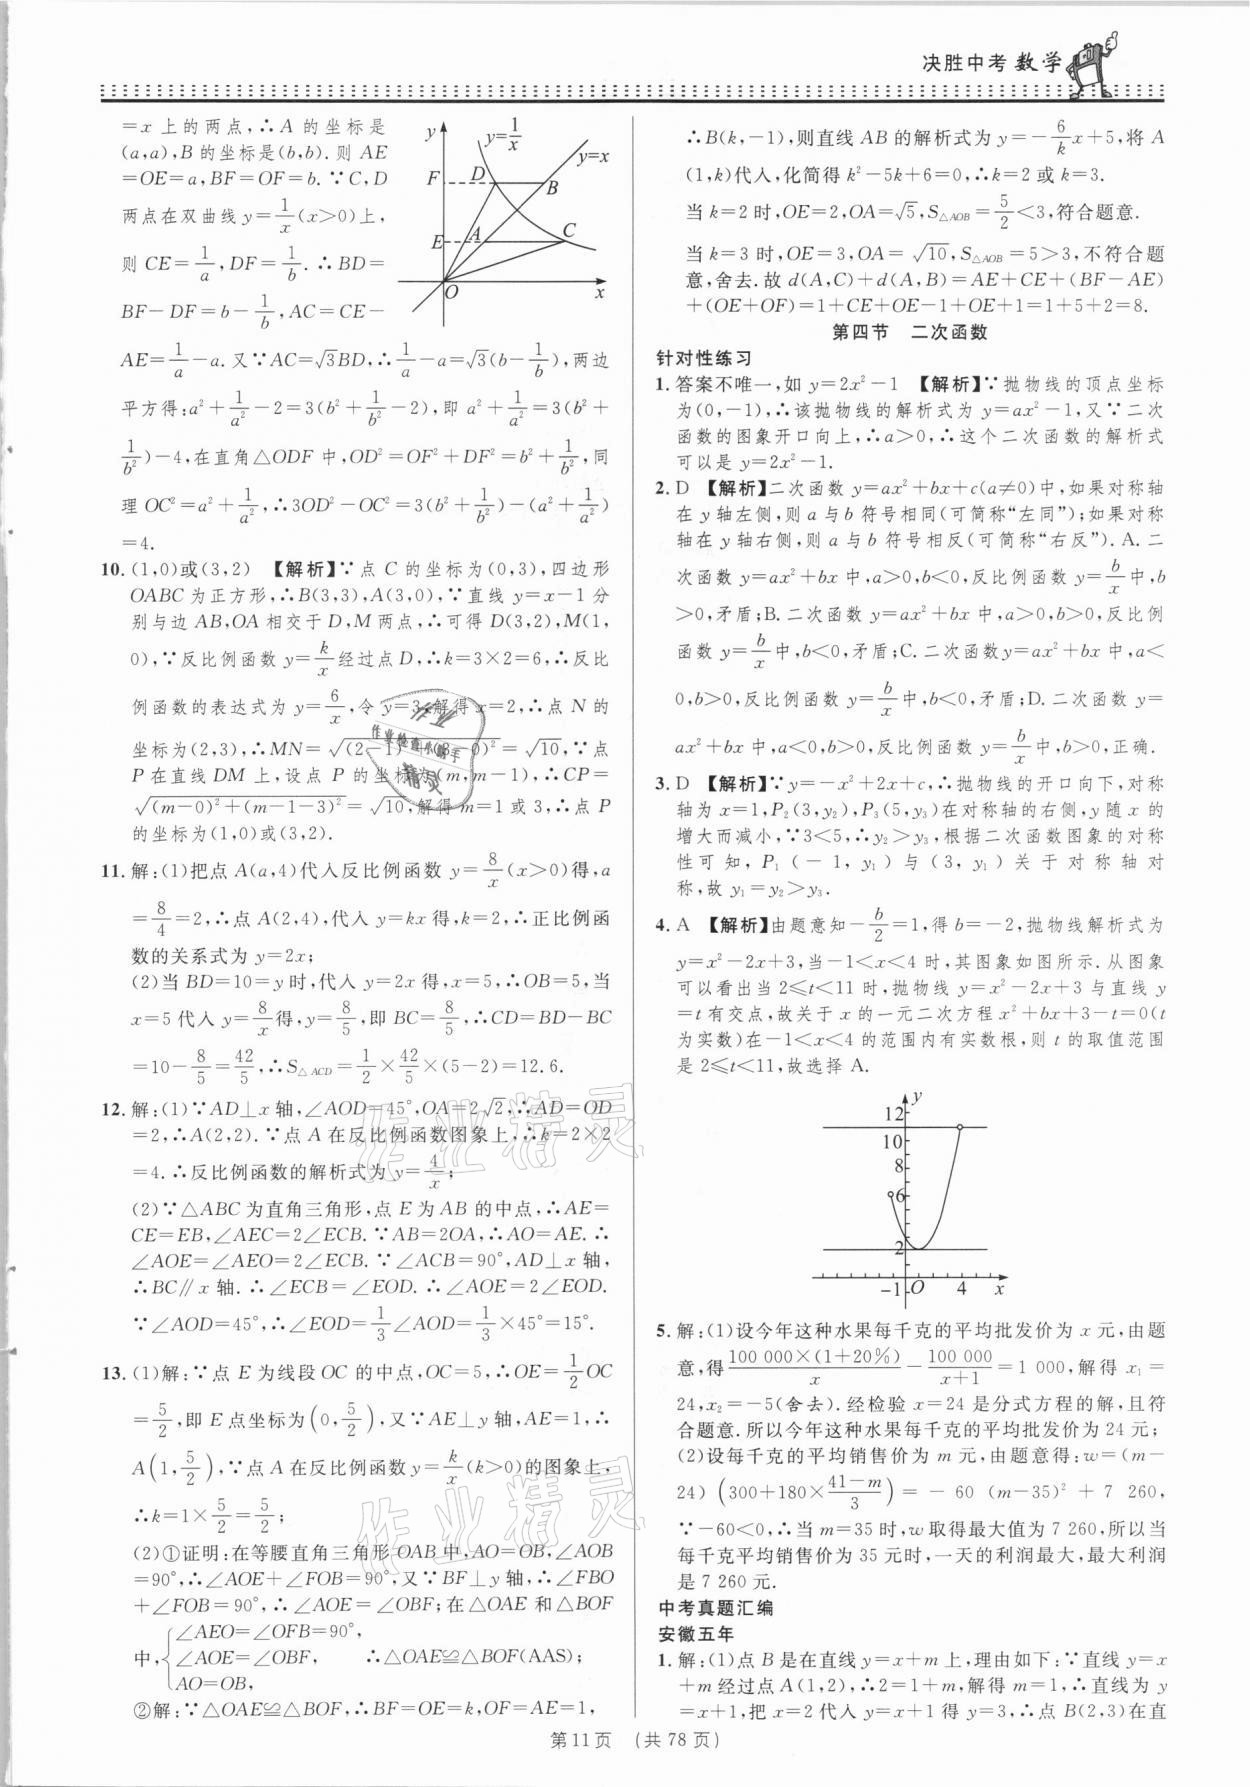 决胜中考 数学
=x 上的两点,∴A 的坐标是
(a,a),B 的坐标是(b,b). 则 AE
=OE=a,BF=OF=b. ∵C,D
两点在双曲线 y=1/x(x>0)上,
则 CE=1/a,DF=1/b. ∴BD=
BF-DF=b-1/b,AC=CE-
y
y=1/x
y=x
F
D
B
E
A
C
O
x
AE=1/a-a. 又∵AC=√3BD,∴1/a-a=√3(b-1/b),两边
平方得:a²+1/a²-2=3(b²+1/b²-2),即 a²+1/a²=3(b²+
1/b²)-4,在直角△ODF 中,OD²=OF²+DF²=b²+1/b²,同
理 OC²=a²+1/a²,∴3OD²-OC²=3(b²+1/b²)-(a²+1/a²)
=4.
10. (1,0)或(3,2) 【解析】∵点 C 的坐标为(0,3),四边形
OABC 为正方形,∴B(3,3),A(3,0),∵直线 y=x-1 分
别与边 AB,OA 相交于 D,M 两点,∴可得 D(3,2),M(1,
0),∵反比例函数 y=k/x 经过点 D,∴k=3×2=6,∴反比
例函数的表达式为 y=6/x,令 y=3,解得 x=2,∴点 N 的
坐标为(2,3),∴MN=√((2-1)²+(3-0)²)=√10,∵点
P 在直线 DM 上,设点 P 的坐标为(m,m-1),∴CP=
√((m-0)²+(m-1-3)²)=√10,解得 m=1 或 3,∴点 P
的坐标为(1,0)或(3,2).
11. 解:(1)把点 A(a,4)代入反比例函数 y=8/x(x>0)得,a
=8/4=2,∴点 A(2,4),代入 y=kx 得,k=2,∴正比例函
数的关系式为 y=2x;
(2)当 BD=10=y 时,代入 y=2x 得,x=5,∴OB=5,当
x=5 代入 y=8/x 得,y=8/5,即 BC=8/5,∴CD=BD-BC
=10-8/5=42/5,∴S△ACD=1/2×42/5×(5-2)=12.6.
12. 解:(1)∵AD⊥x 轴,∠AOD=45°,OA=2√2,∴AD=OD
=2,∴A(2,2). ∵点 A 在反比例函数图象上,∴k=2×2
=4. ∴反比例函数的解析式为 y=4/x;
(2)∵△ABC 为直角三角形,点 E 为 AB 的中点,∴AE=
CE=EB,∠AEC=2∠ECB. ∵AB=2OA,∴AO=AE. ∴
∠AOE=∠AEO=2∠ECB. ∵∠ACB=90°,AD⊥x 轴,
∴BC∥x 轴. ∴∠ECB=∠EOD. ∴∠AOE=2∠EOD.
∵∠AOD=45°,∴∠EOD=1/3∠AOD=1/3×45°=15°.
13. (1)解:∵点 E 为线段 OC 的中点,OC=5,∴OE=1/2OC
=5/2,即 E 点坐标为(0,5/2),又∵AE⊥y 轴,AE=1,∴
A(1,5/2),∵点 A 在反比例函数 y=k/x(k>0)的图象上,
∴k=1×5/2=5/2;
(2)①证明:在等腰直角三角形 OAB 中,AO=OB,∠AOB
=90°,∴∠AOE+∠FOB=90°,又∵BF⊥y 轴,∴∠FBO
+∠FOB=90°,∴∠AOE=∠OBF;在△OAE 和△BOF
∠AEO=∠OFB=90°,
中,{∠AOE=∠OBF, ∴△OAE≌△BOF(AAS);
AO=OB,
②解:∵△OAE≌△BOF,∴BF=OE=k,OF=AE=1,
∴B(k,-1),则直线 AB 的解析式为 y=-6/k x+5,将 A
(1,k)代入,化简得 k²-5k+6=0,∴k=2 或 k=3.
当 k=2 时,OE=2,OA=√5,S△AOB=5/2<3,符合题意.
当 k=3 时,OE=3,OA=√10,S△AOB=5>3,不符合题
意,舍去. 故 d(A,C)+d(A,B)=AE+CE+(BF-AE)
+(OE+OF)=1+CE+OE-1+OE+1=1+5+2=8.
第四节 二次函数
针对性练习
1. 答案不唯一,如 y=2x²-1 【解析】∵抛物线的顶点坐标
为(0,-1),∴该抛物线的解析式为 y=ax²-1,又∵二次
函数的图象开口向上,∴a>0,∴这个二次函数的解析式
可以是 y=2x²-1.
2. D 【解析】二次函数 y=ax²+bx+c(a≠0)中,如果对称轴
在 y 轴左侧,则 a 与 b 符号相同(可简称“左同”);如果对称
轴在 y 轴右侧,则 a 与 b 符号相反(可简称“右反”). A. 二
次函数 y=ax²+bx 中,a>0,b<0,反比例函数 y=b/x 中,b
>0,矛盾;B. 二次函数 y=ax²+bx 中,a>0,b>0,反比例
函数 y=b/x 中,b<0,矛盾;C. 二次函数 y=ax²+bx 中,a<
0,b>0,反比例函数 y=b/x 中,b<0,矛盾;D. 二次函数 y=
ax²+bx 中,a<0,b>0,反比例函数 y=b/x 中,b>0,正确.
3. D 【解析】∵y=-x²+2x+c,∴抛物线的开口向下,对称
轴为 x=1,P₂(3,y₂),P₃(5,y₃)在对称轴的右侧,y 随 x 的
增大而减小,∵3<5,∴y₂>y₃,根据二次函数图象的对称
性可知,P₁(-1,y₁)与(3,y₁)关于对称轴对
称,故 y₁=y₂>y₃.
4. A 【解析】由题意知-b/2=1,得 b=-2,抛物线解析式为
y=x²-2x+3,当-1<x<4 时,其图象如图所示. 从图象
可以看出当 2≤t<11 时,抛物线 y=x²-2x+3 与直线 y
=t 有交点,故关于 x 的一元二次方程 x²+bx+3-t=0(t
为实数)在-1<x<4 的范围内有实数根,则 t 的取值范围
是 2≤t<11,故选择 A.
y
12
10
8
6
2
-1
O
4
x
5. 解:(1)设今年这种水果每千克的平均批发价为 x 元,由题
意,得 100 000×(1+20%)/x - 100 000/(x+1)=1 000,解得 x₁=
24,x₂=-5(舍去). 经检验 x=24 是分式方程的解,且符
合题意. 所以今年这种水果每千克的平均批发价为 24 元;
(2)设每千克的平均销售价为 m 元,由题意得:w=(m-
24)(300+180×(41-m)/3)=-60(m-35)²+7 260,
∵-60<0,∴当 m=35 时,w 取得最大值为 7 260,所以当
每千克平均销售价为 35 元时,一天的利润最大,最大利润
是 7 260 元.
中考真题汇编
安徽五年
1. 解:(1)点 B 是在直线 y=x+m 上,理由如下:∵直线 y=x
+m 经过点 A(1,2),∴2=1+m,解得 m=1,∴直线为 y
=x+1,把 x=2 代入 y=x+1 得 y=3,∴点 B(2,3)在直
第 11 页 (共 78 页)
作业
作业检查小助手
精灵
作业精灵
作业精灵